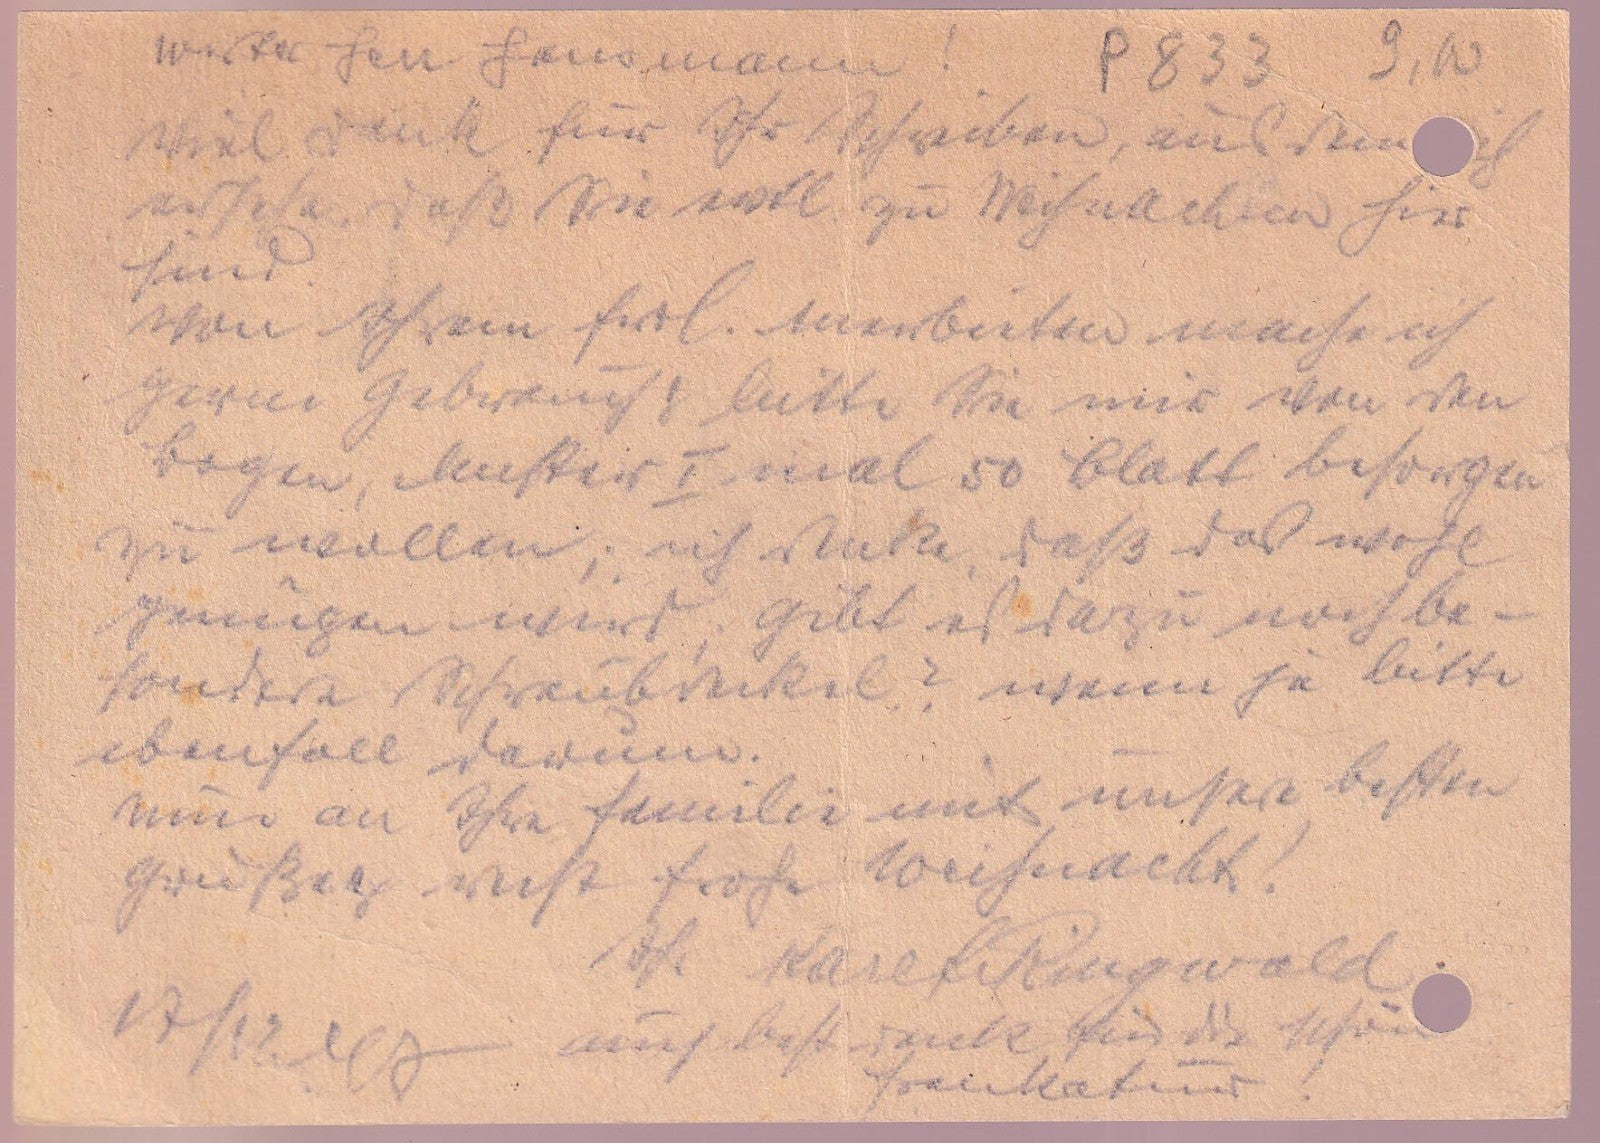 Werter Herr Hensmann! P 833 9,10
Viel Dank für Ihr Schreiben, aus dem ich
ersehe, daß Sie evtl. zu Weihnachten hier
sind.
Von Ihrem frdl. Anerbieten mache ich
gerne Gebrauch & bitte Sie mir von den
Bogen, Muster I mal 50 Blatt besorgen
zu wollen; ich denke, daß das wohl
genügen wird; gibt es dazu noch be-
sondere Schraubdeckel? wenn ja bitte
ebenfall darum.
Nun an Ihre Familie mit unsere besten
Grüßen recht frohe Weihnacht!
Ihr Karl Ringwald
17/12. auch best Dank für die schön
Frankatur!